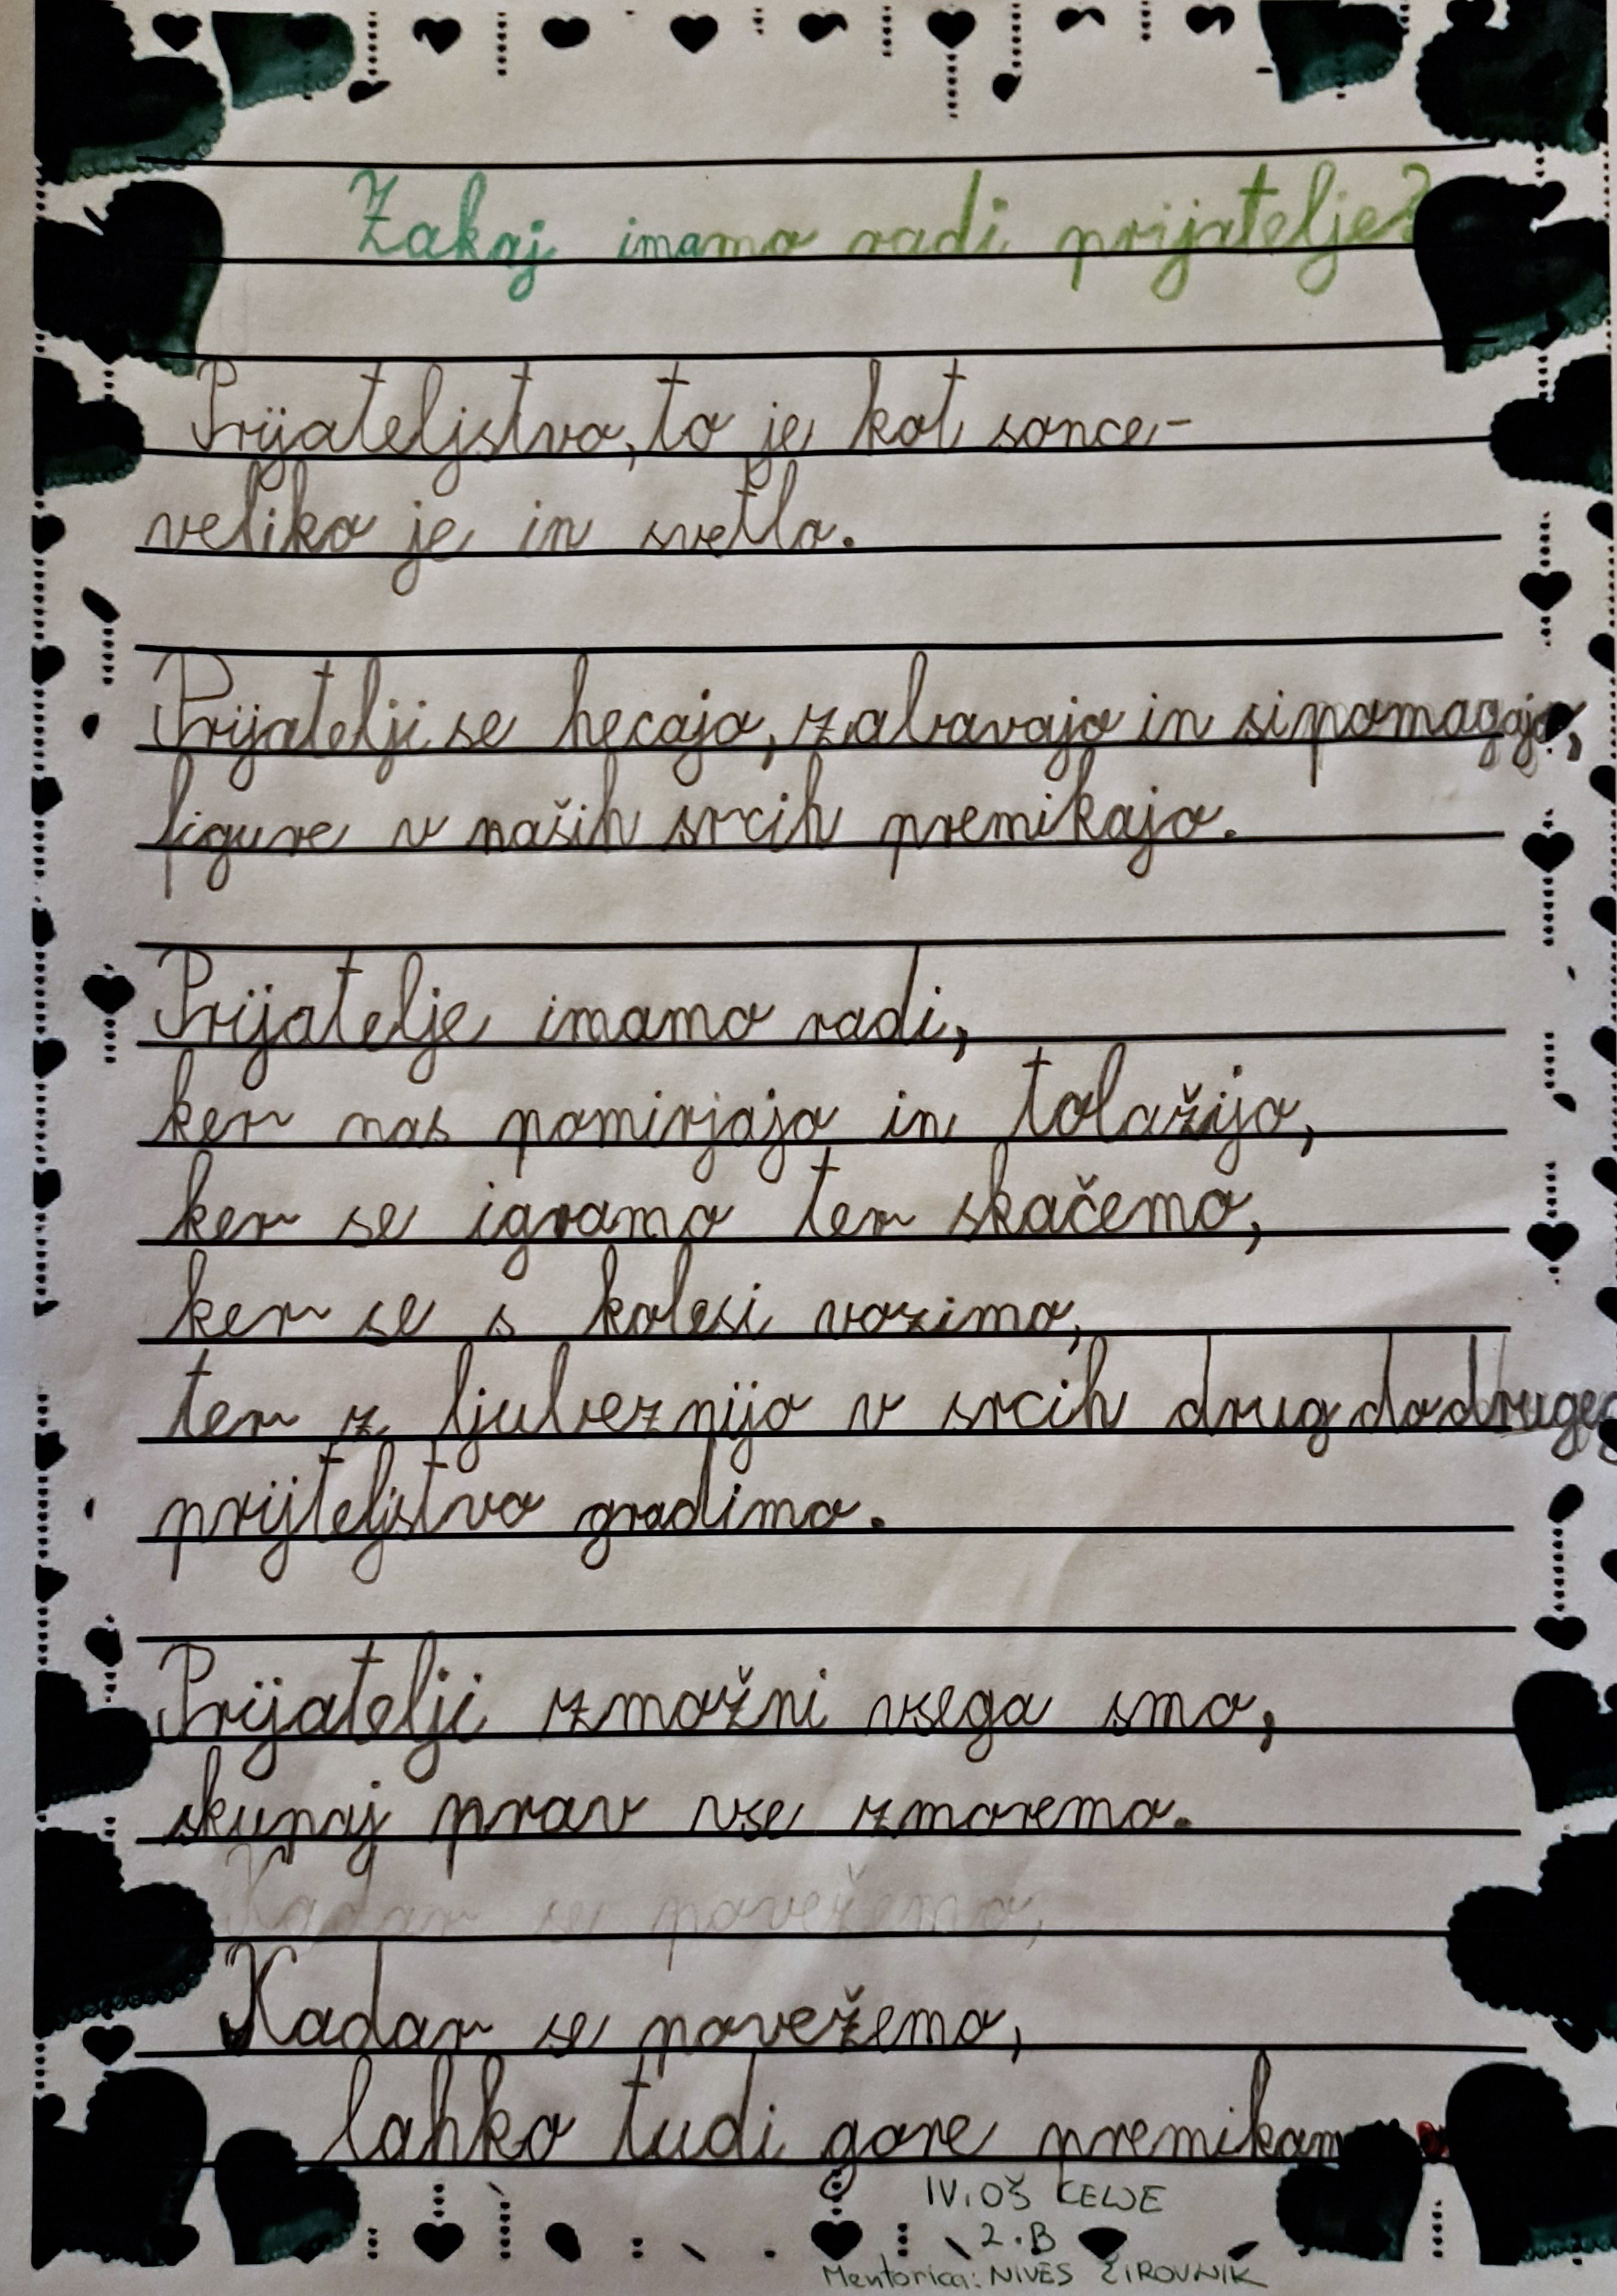 Zakaj imamo radi prijatelje?
Prijateljstvo, to je kot sonce-
veliko je in svetlo.
Prijatelji se hecajo, zabavajo in si pomagajo,
figure v naših srcih premikajo.
Prijatelje imamo radi,
ker nas pomirjajo in tolažijo,
ker se igramo ter skačemo,
ker se s kolesi vozimo,
ter z ljubeznijo v srcih drug do drugeg
prijteljstvo gradimo.
Prijatelji zmožni vsega smo,
skupaj prav vse zmoremo.
Kadar se povežemo,
Kadar se povežemo,
lahko tudi gore premikam
IV. OŠ CELJE
2. B
Mentorica: NIVES ŽIROVNIK